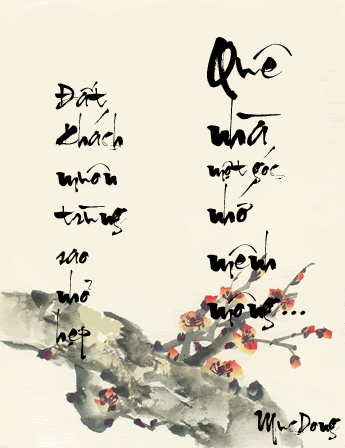 Quê
nhà
một góc
nhớ
mênh
mông...
Đất
khách
muôn
trùng
sao
nhỏ
hẹp
MụcDong